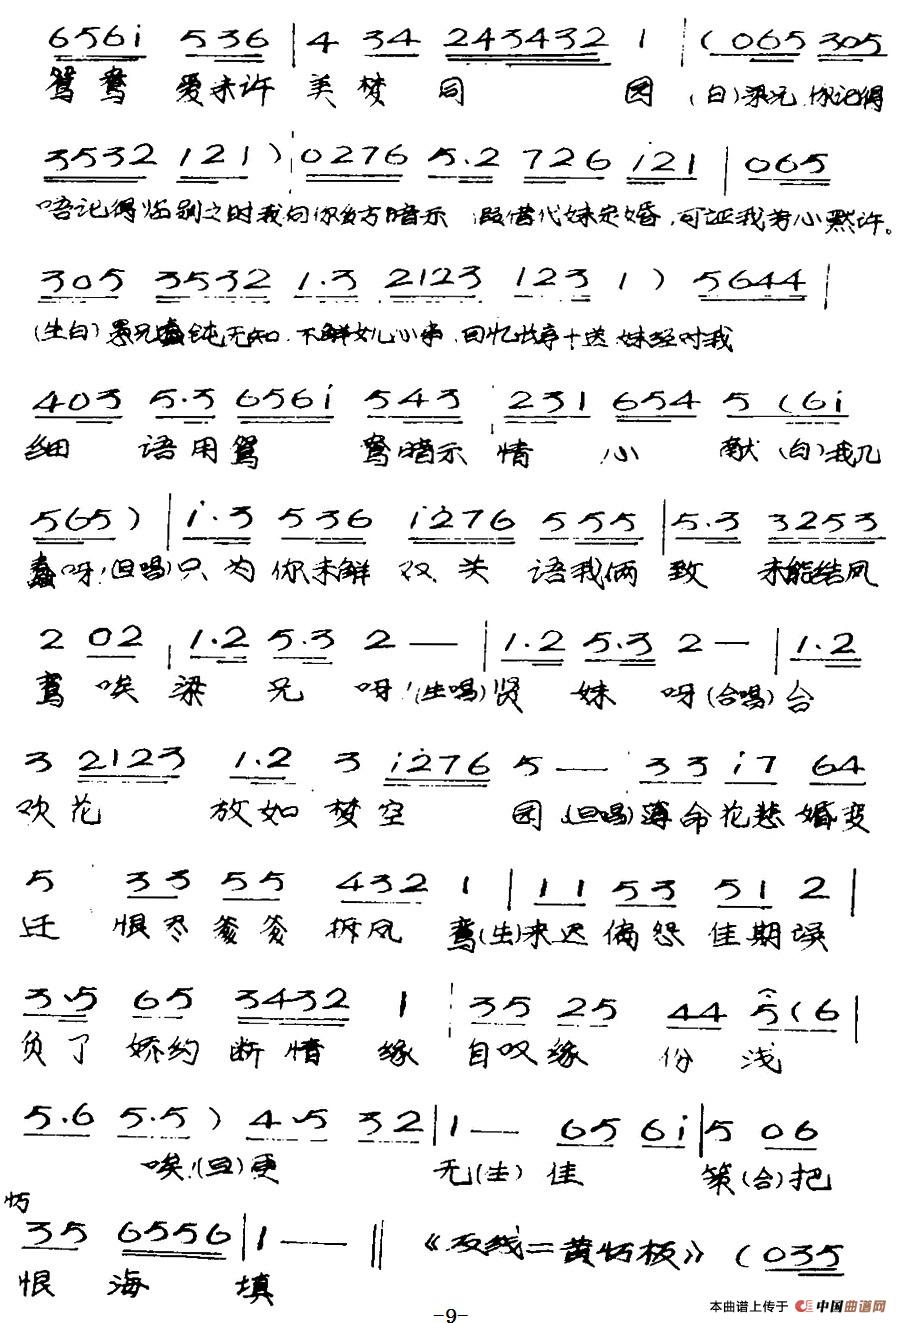 6561̇ 536 | 4 34 243432 1 | (065 305
鸳鸯 爱来许 美梦 同 园 (白)梁兄,你记得
3532 121) 0276 5.2 726 1̇21 | 065
唔记得临别之时我向你多方暗示 假借代妹定婚,可证我芳心默许。
305 3532 1.3 2123 123 1) 5644 |
(生白)愚兄蠢钝无知,不解女儿心事,回忆长亭十送 妹经对我
403 5.3 6561̇ 543 231 654 5 (61̇
细 语用鸳 鸯暗示 情 心 献 (白)我几
565) | 1̇.3 536 1̇276 555 | 5.3 3253
蠢呀!(旦唱)只为你未解 双关 语我俩 致 未能结凤
2 02 | 1.2 5.3 2 — | 1.2 5.3 2 — | 1.2
鸾 唉 梁 兄 呀!(生唱)贤 妹 呀(合唱)合
3 2123 1.2 3 1̇276 5 — 33 1̇7 64
欢花 放如 梦空 园 (旦唱)薄命花悲婚变
5 33 55 432 1 | 11 53 51 2 |
迁 恨尽爹爹 拆凤 鸾(生)来迟偏怨 佳期误
3.5 65 3432 1 35 25 44 5(6 |
负了 娇约断情 缘 自叹缘 份 浅
5.6 5.5) 4.5 32 | 1 — 65 61̇ | 5 06
唉!(旦)更 无(生)佳 策(合)把
35 6556 | 1 — — ‖ 《反线二黄慢板》 (035
恨 海 填
-9-
本曲谱上传于 中国曲谱网